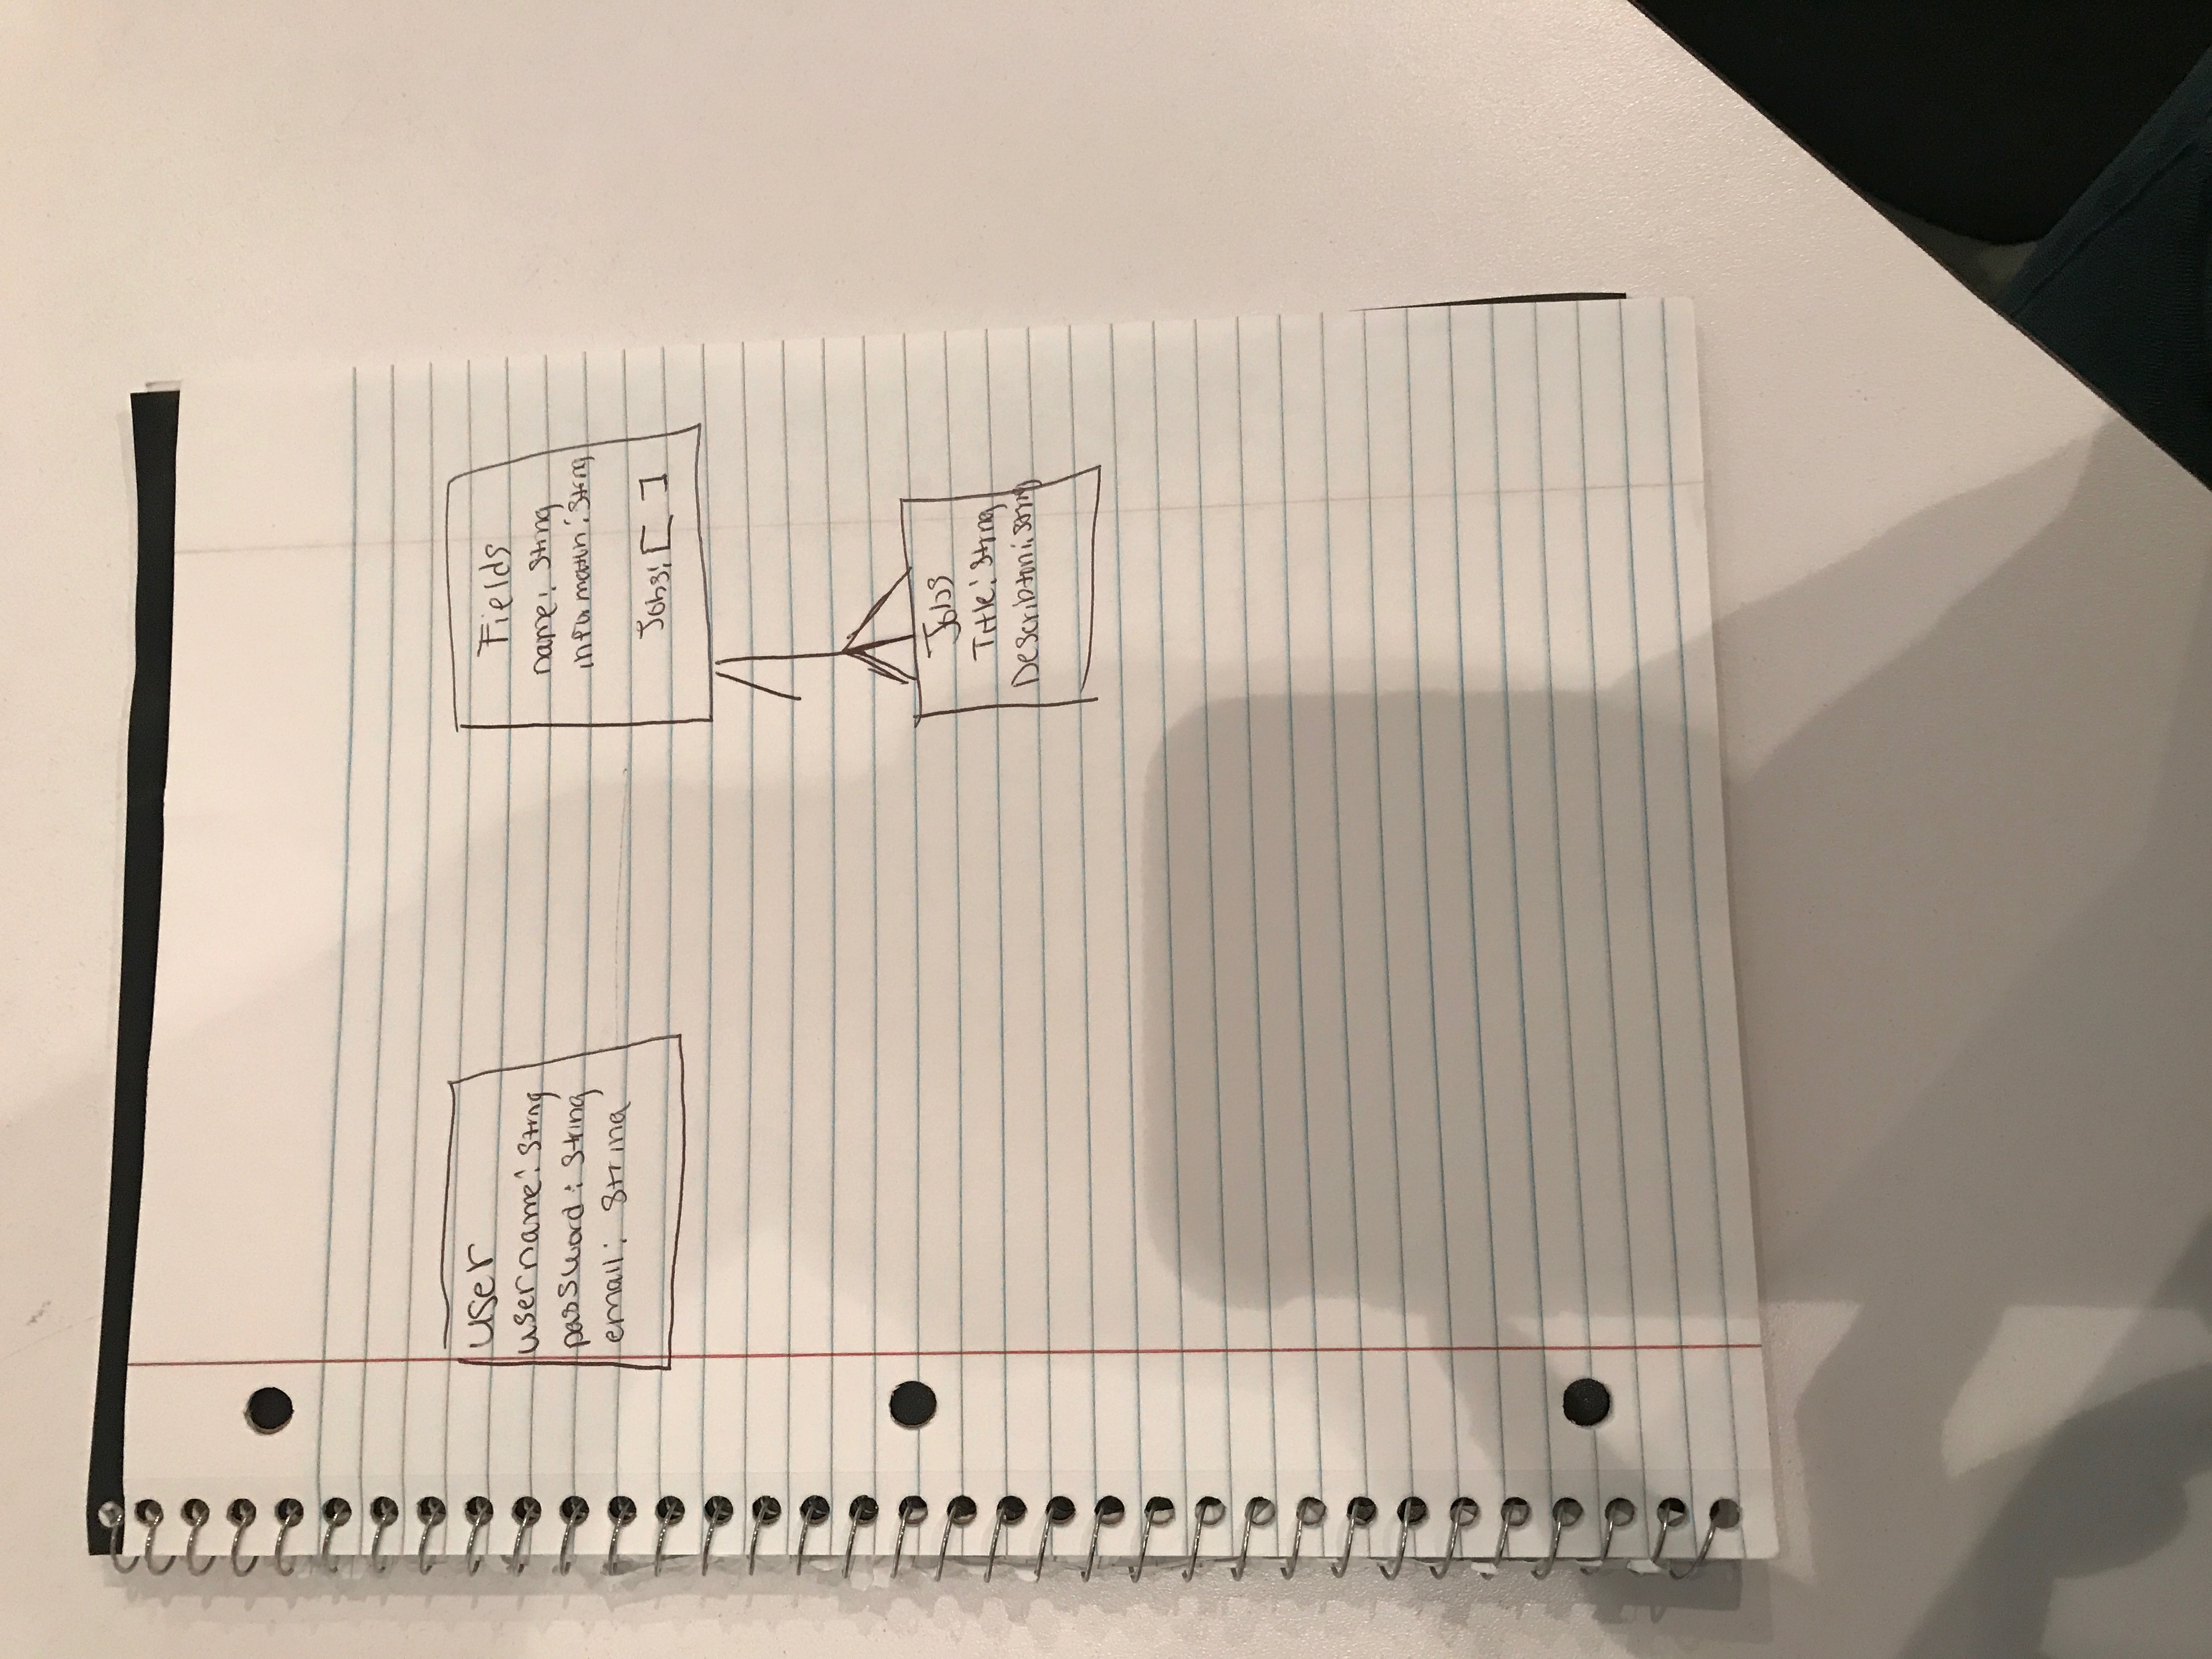 user
username: Strng
password: String
email: String
Fields
name: String
information: Strng
Jobs: [ ]
Jobs
Title: Strng
Describtion: String